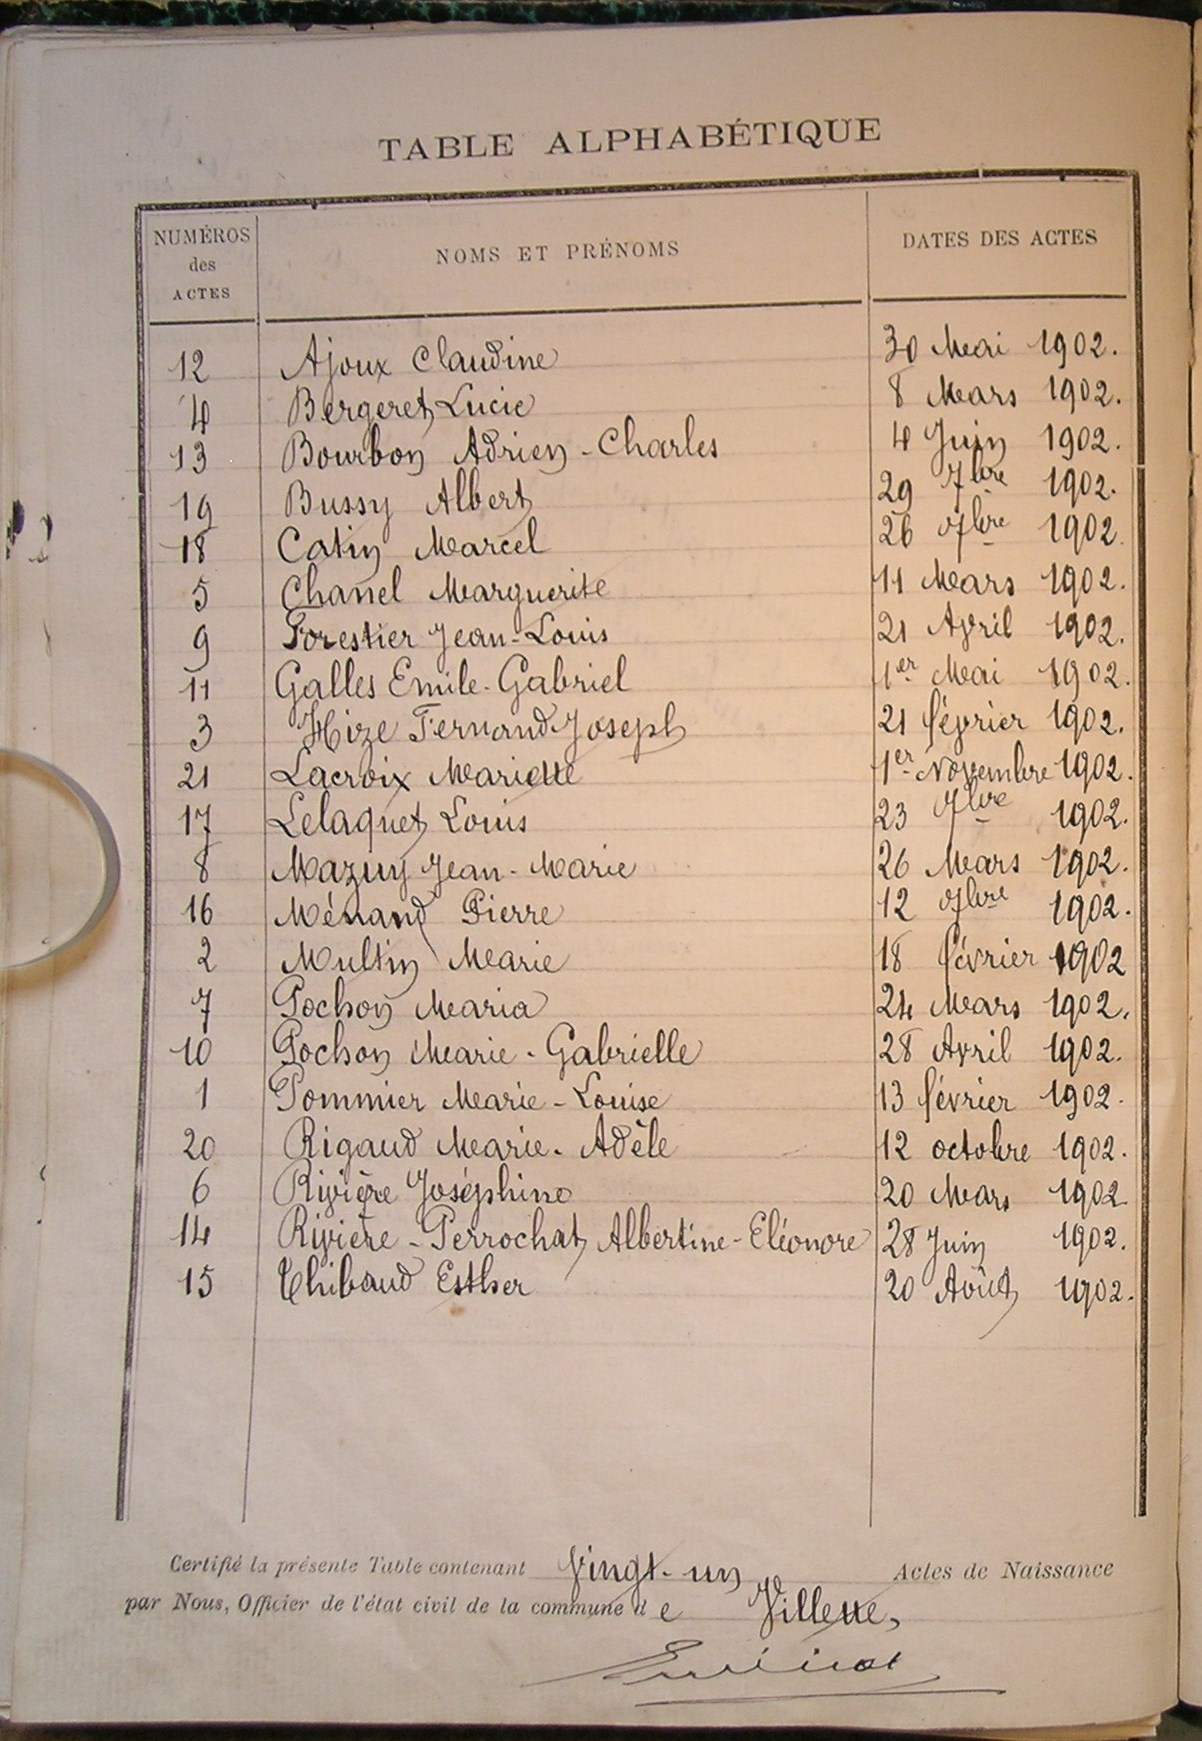 TABLE ALPHABÉTIQUE
NUMÉROS des ACTES NOMS ET PRÉNOMS DATES DES ACTES
12 Ajoux Claudine 30 Mai 1902.
4 Bergeret Lucie 8 Mars 1902.
13 Bourbon Adrien - Charles 4 Juin 1902.
19 Bussy Albert 29 7bre 1902.
18 Catin Marcel 26 7bre 1902.
5 Chanel Marguerite 11 Mars 1902.
9 Forestier Jean-Louis 21 Avril 1902.
11 Gallès Emile-Gabriel 1er Mai 1902.
3 Hize Fernand Joseph 21 février 1902.
21 Lacroix Mariette 1er Novembre 1902.
17 Lelaquet Louis 23 7bre 1902.
8 Mazuy Jean-Marie 26 Mars 1902.
16 Ménand Pierre 12 7bre 1902.
2 Multin Marie 18 février 1902
7 Pochon Maria 24 Mars 1902.
10 Pochon Marie-Gabrielle 28 Avril 1902.
1 Pommier Marie-Louise 13 février 1902.
20 Rigaud Marie-Adèle 12 octobre 1902.
6 Rivière Joséphine 20 Mars 1902
14 Rivière-Perrochat Albertine-Eléonore 28 Juin 1902.
15 Thibaud Esther 20 Août 1902.
Certifié la présente Table contenant Vingt-un Actes de Naissance
par Nous, Officier de l'état civil de la commune de Villette,